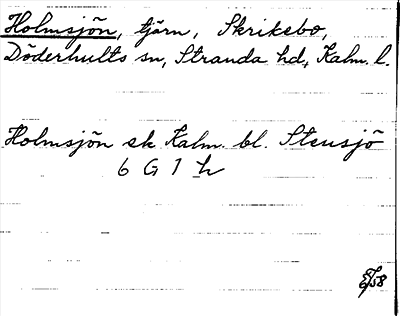 Holmsjön, tjärn, Skrikebo,
Döderhults sn, Stranda hd, Kalm. l.
Holmsjön ek Kalm. bl. Stensjö
6 G 1 h